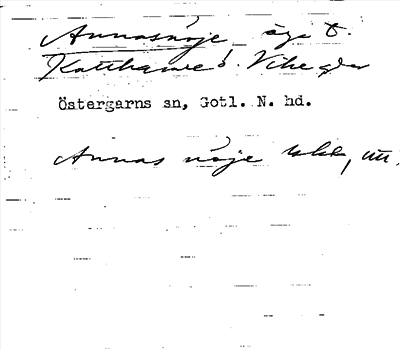 Annasnöje, äga t.
Katthamre i Vike gdr
Östergarns sn, Gotl. N. hd.
Annas nöje